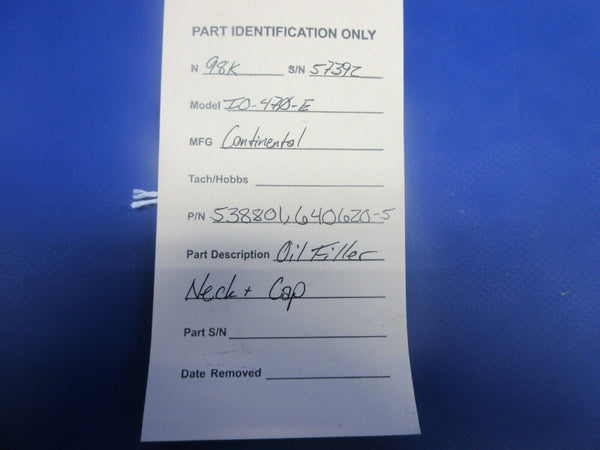 PART IDENTIFICATION ONLY
N 98K S/N 57392
Model IO-470-E
MFG Continental
Tach/Hobbs
P/N 538801, 640620-5
Part Description Oil Filler
Neck + Cap
Part S/N
Date Removed